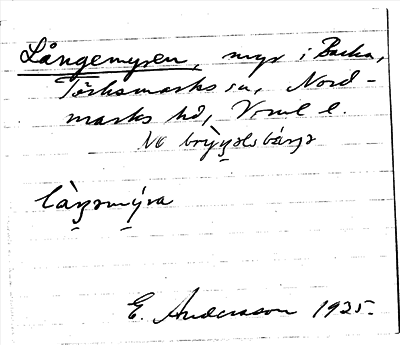 Långemyren, myr i Backa,
Töcksmarks sn, Nord-
marks hd, Vrml l.
NO
làŋəmýra
E. Andersson 1925.